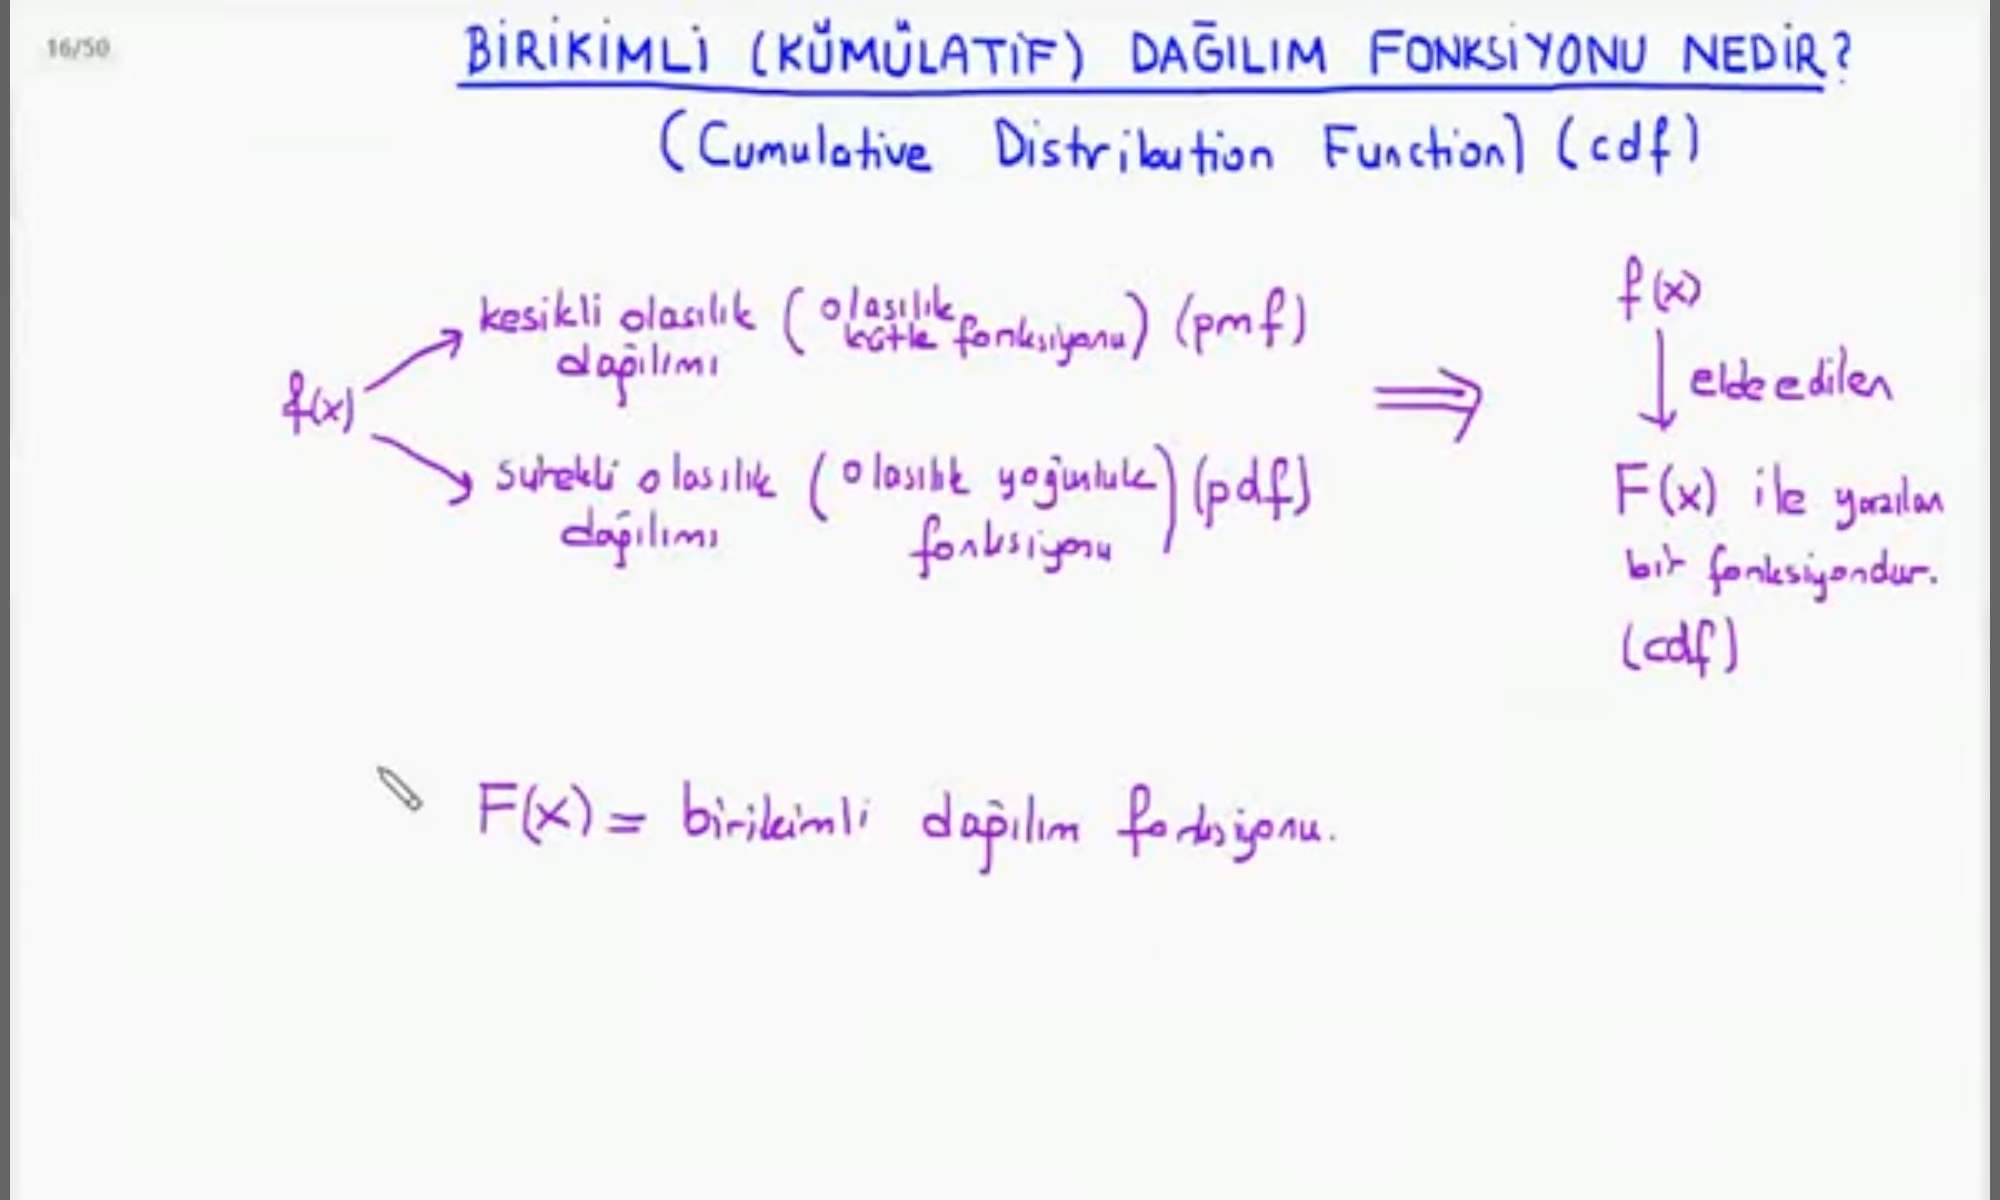 16/50
BİRİKİMLİ (KÜMÜLATİF) DAĞILIM FONKSİYONU NEDİR?
(Cumulative Distribution Function) (cdf)
f(x)
kesikli olasılık dağılımı (olasılık kütle fonksiyonu) (pmf)
sürekli olasılık dağılımı (olasılık yoğunluk fonksiyonu) (pdf)
f(x)
elde edilen
F(x) ile yazılan
bir fonksiyondur.
(cdf)
F(x) = birikimli dağılım fonksiyonu.